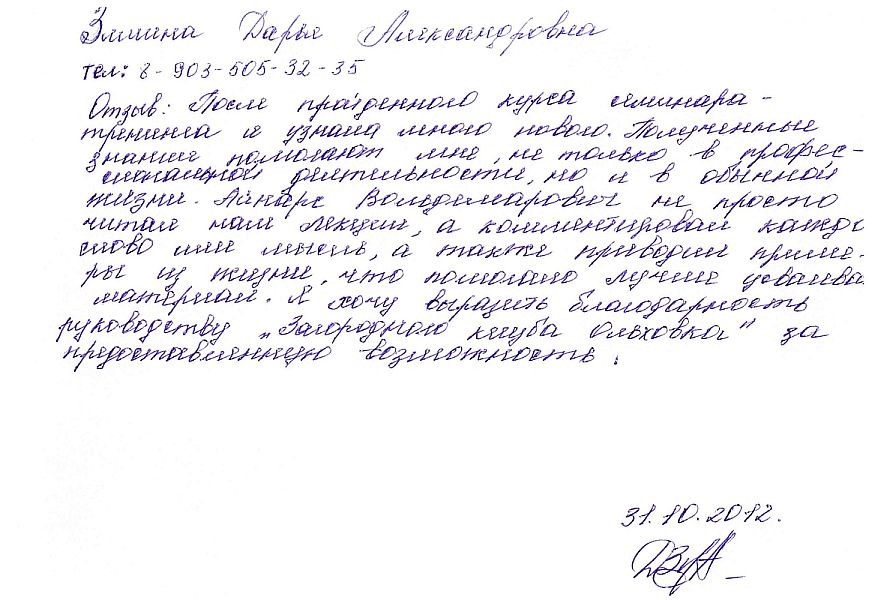 Зимина Дарья Александровна
тел: 8-903-505-32-35
Отзыв: После пройденного курса семинара-
тренинга я узнала много нового. Полученные
знания помогают мне, не только в профес-
сиональной деятельности, но и в обычной
жизни. Айнарс Волдемарович не просто
читал нам лекции, а комментировал каждо
слово или мысль, а также приводил приме-
ры из жизни, что помогало лучше усваива
материал. Я хочу выразить благодарность
руководству „Загородного клуба Ольховка" за
предоставленную возможность.
31.10.2012.